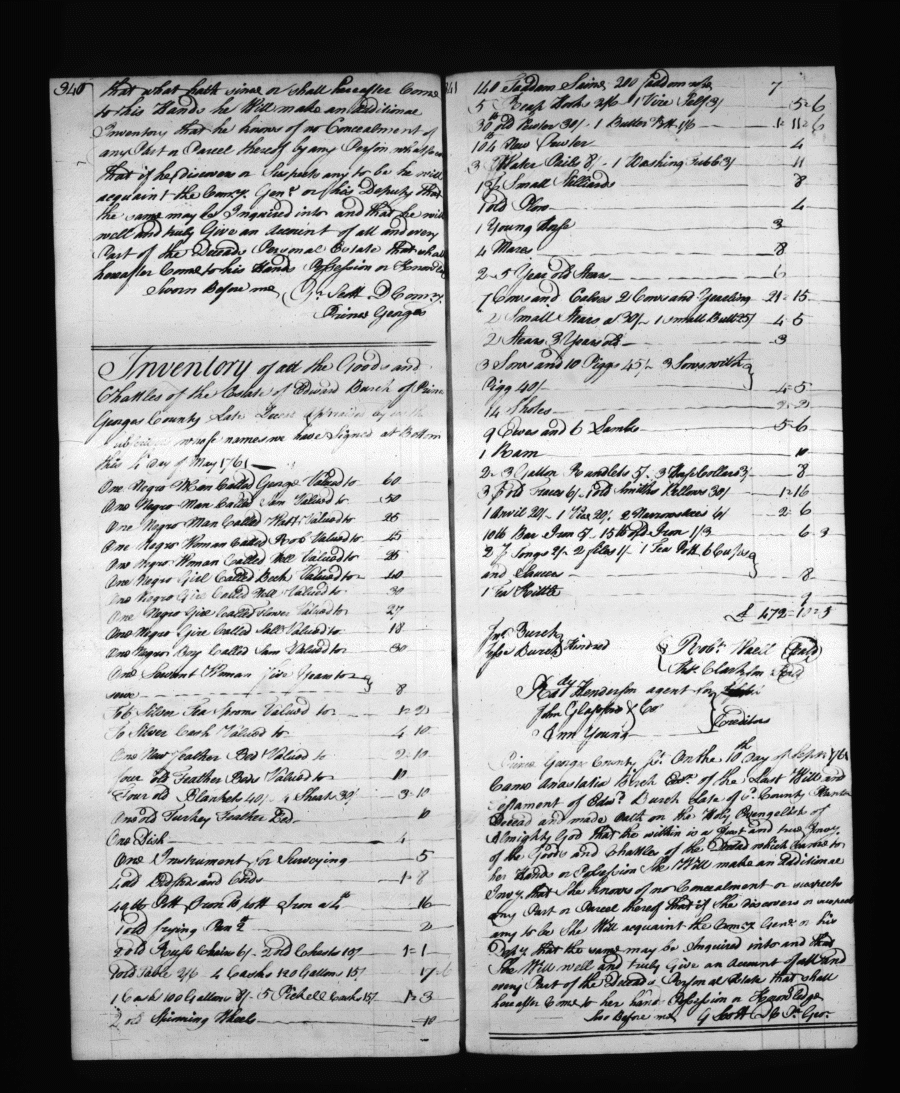 340
that what hath since or shall hereafter Come
to his Hands he Will make an additional
Inventory that he knows of no Concealment of
any Part or Parcel thereof by any Person whatsoever
that if he discovers or Suspects any to be he will
acquaint the Comry. Genl. or his Deputy that
the same may be Inquired into and that he will
well and truly Give an account of all and every
Part of the Deceds. Personal Estate that shall
hereafter Come to his Hands Possession or Knowledge
Sworn Before me Scott D Comry.
Prince Georges
Inventory of all the Goods and
Chattles of the Estate of Edward Burch of Prince
Georges County Late Deced
whose names we have Signed at Bottom
this Day of May 1761
One Negro Man Called George Valued to 60
One Negro Man Called Sam Valued to 50
One Negro Man Called Valued to 25
One Negro Woman Called Valued to 45
One Negro Woman Called Nell Valued to 25
One Negro Girl Called Beck Valued to 40
One Negro Girl Called Nell Valued to 30
One Negro Girl Called Flower Valued to 27
One Negro Girl Called Valued to 18
One Negro Boy Called Sam Valued to 30
One Servant Woman five Years to
serve 8
To 6 Silver Tea Spoons Valued to 1=2
To Silver Cash Valued to 4 10
One New Feather Bed Valued to 9=10
four old Feather Beds Valued to 10
Four old Blankets 40/- 4 Sheat 30/ 3=10
One old Turkey Feather Bed 10
One Dish 4
One Instrument for Surveying 5
4 old Bedsteads and Cords 1=8
49 lb Pott Iron 16
1 old frying Pan 2
2 old Rush Chairs 6/- 2 old Chests 15/ 1=1
1 old Table 2/6 4 Casks 120 Gallons 15/ 17=6
1 Cask 100 Gallons 8/- 5 Pickell Casks 15/ 1=3
2 old Spinning Wheels 10
341
140 Faddom Seine 200 faddom 7
5 Reap Hooks 2/6 1 Vice 3/ 5=6
30 lb old Pewter 30/- 1 Butter Pott 1/6 1=11=6
10 lb New Pewter 4
3 Water Pails 8/- 1 Washing Tubb 3/ 11
1 Small Stilliards 8
1 old Plow 4
1 Young Horse 3
4 Mares 8
2 5 Year old Stears 6
7 Cows and Calves 2 Cows and Yearling 21=15
2 Small Stears at 30/- 1 small Bull 25/ 4=5
2 Stears 3 Years old 3
3 Sows and 10 Piggs 45/- 3 Sows with
Pigg 40/ 4=5
14 Shotes
9 Ewes and 6 Lambs 5=6
1 Ram 10
2 3 Gallon Rundlets 5/- 3 Horse Collars 3/ 8
3 old Traces 6/- 1 old Smiths Bellows 30/ 1=16
1 Anvil 20/- 1 Vice 20/ 2 6/ 2=6
10 lb Bar Iron 5/- 15 lb old Iron 1/3 6 3
2 Tongs 2/- 2 files 1/- 1 Tea Pott 6 Cups
and Saucers 8
1 Tea Kittle
£ 472=
Jno. Burch
Burch Kindred
Robt. Wade
Thos. Clarkson
Robt. Henderson agent for
John Glassford & Co
Ann Young
Creditors
Prince Georges County St. On the 10th Day of Septr. 1761
Came Anastatia Burch Extx. of the Last Will and
Testament of Edwd. Burch Late of Sd. County Planter
Deceed and made oath on the Holy Evangelist of
Almighty God that the within is a Just and true Invy.
of the Goods and Chattles of the Deceed which Came to
her Hands or Possession She Will make an additional
Invy. that She knows of no Concealment or suspects
any Part or Parcel thereof that if She discovers or suspects
any to be She Will acquaint the Comry. Genl. or his
Depy. that the same may be Inquired into and that
She Will well and truly Give an account of all and
every Part of the Deceeds Personal Estate that shall
hereafter Come to her hand Possession or Knowledge
Swo Before me G Scott D C Pr. Geo.